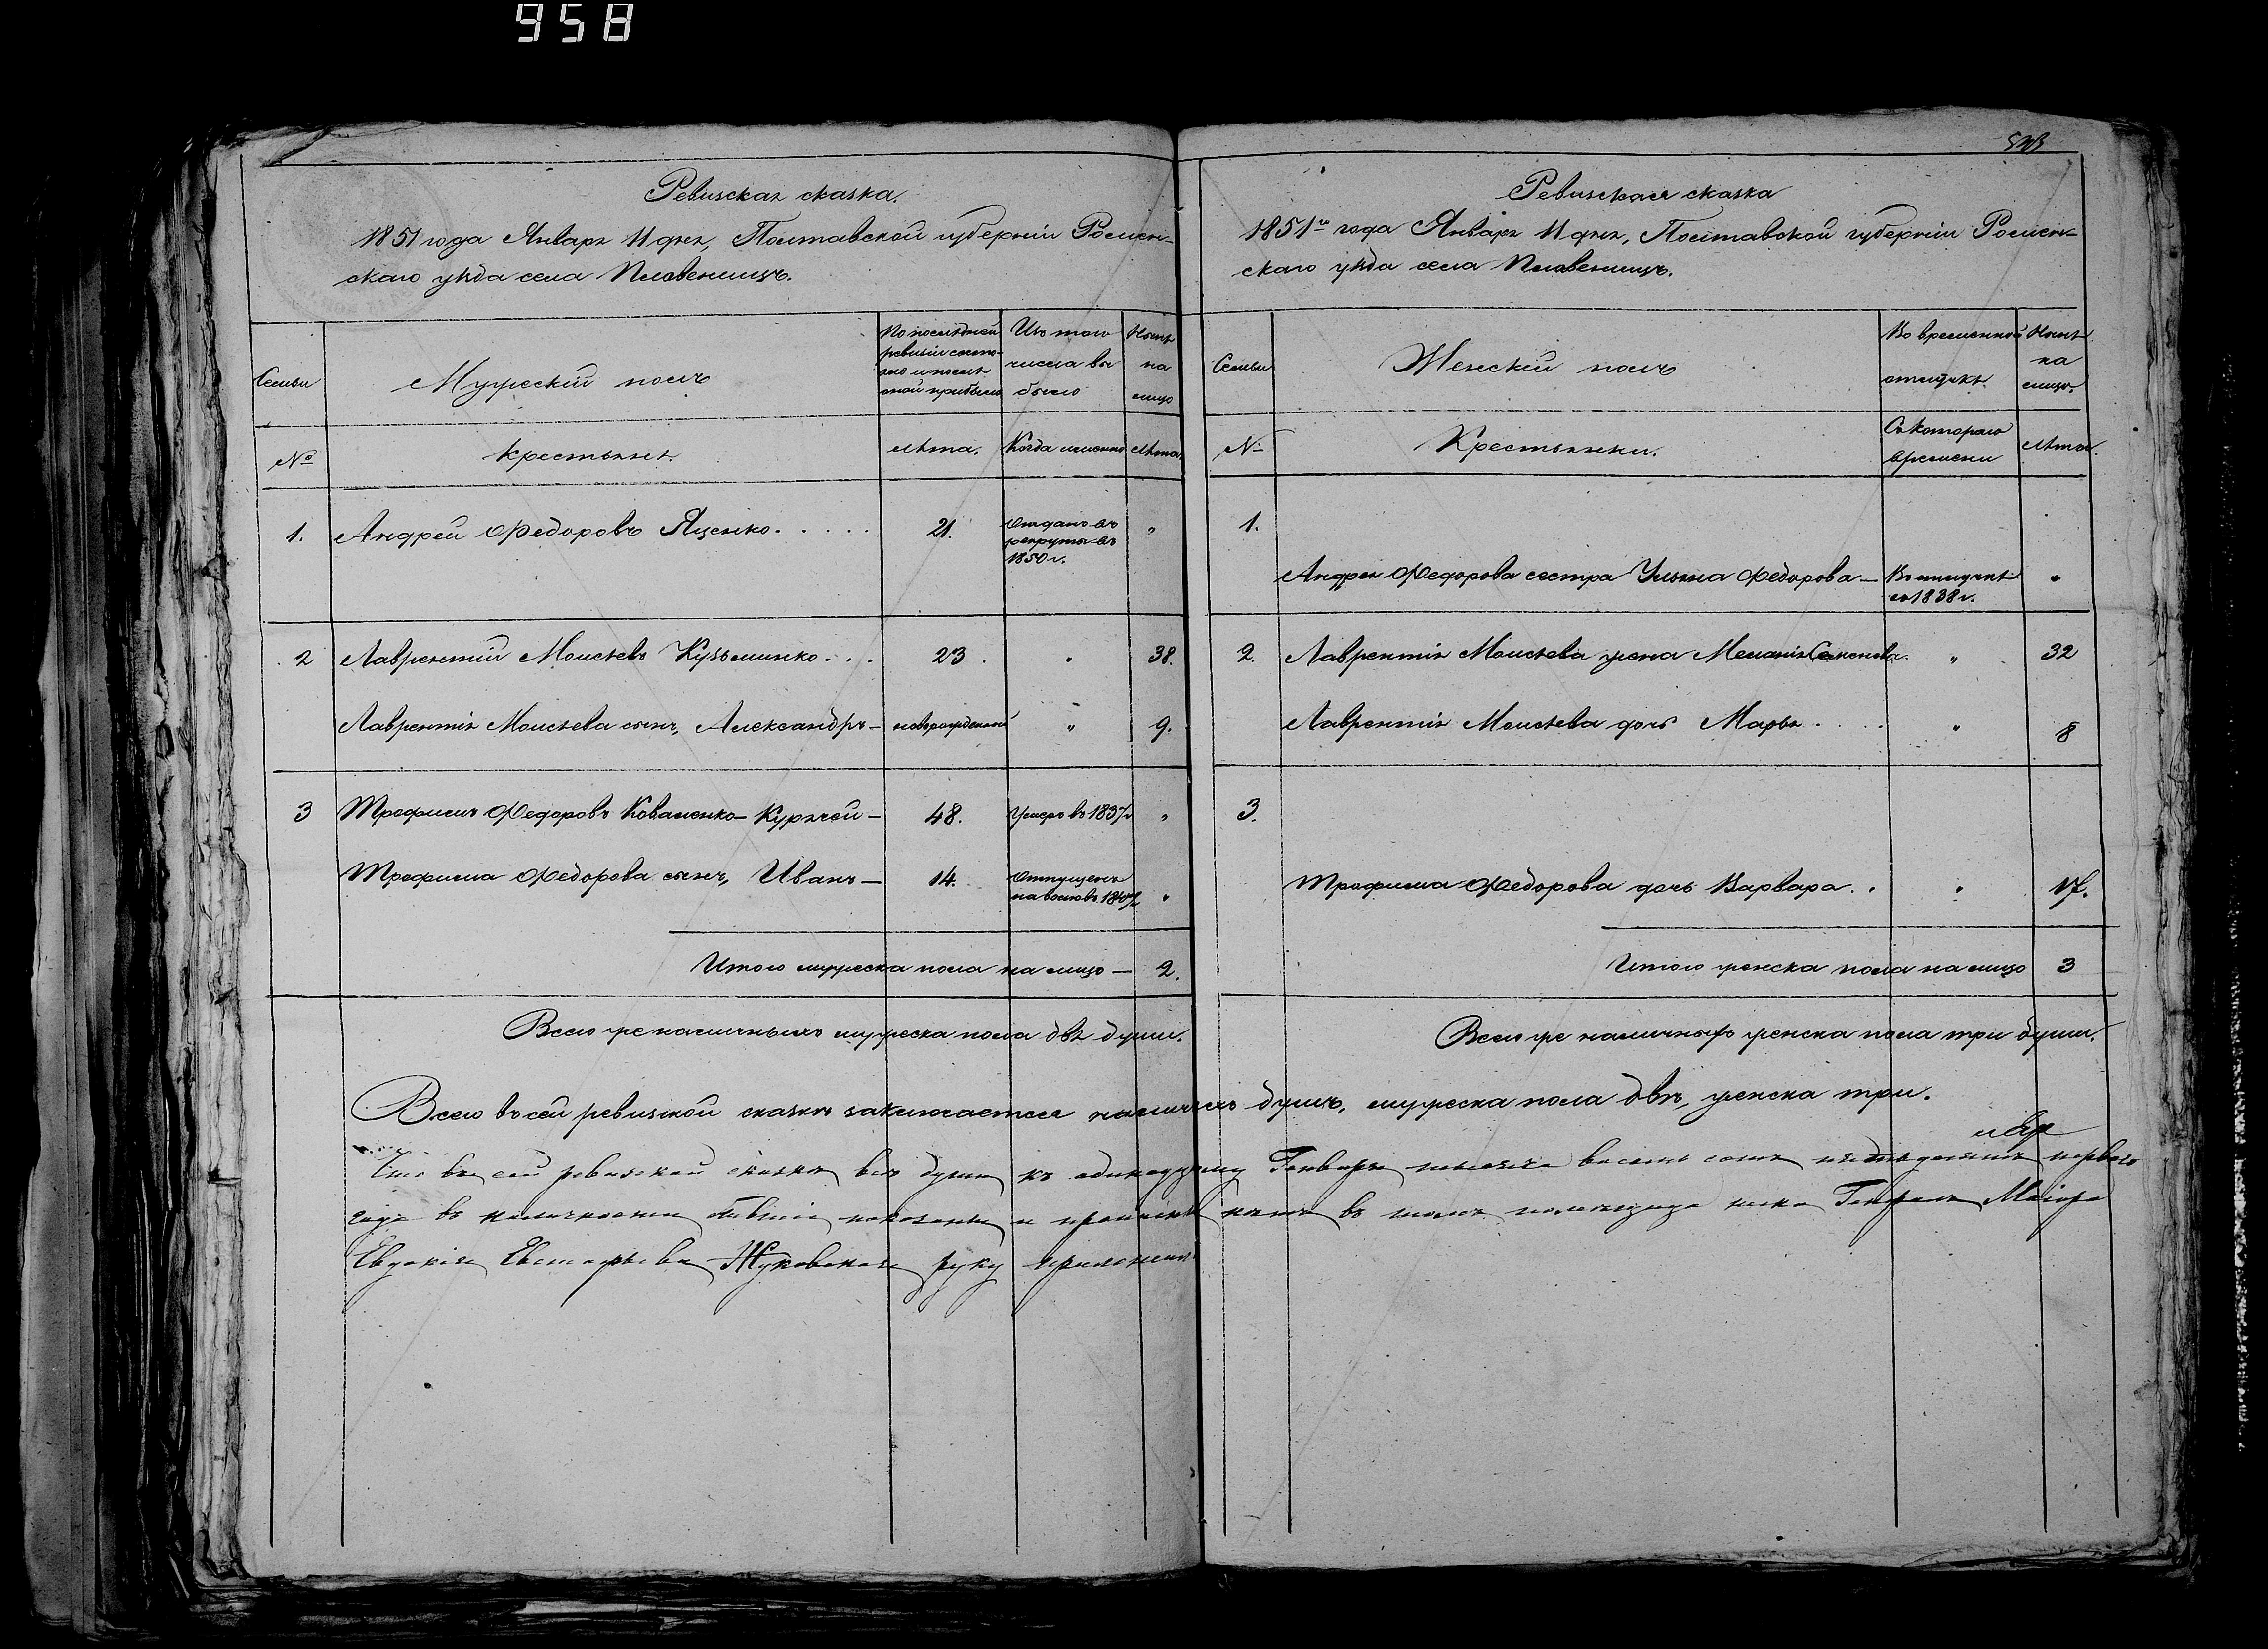 958
Ревизская сказка.
1851 года Января 11 дня, Полтавской губерніи Ромен-
скаго уѣзда села Пловениць.
Семьи
Мужескій полъ
По послѣдней ревизіи состояло и послѣ оной прибыло
Изъ того числа выбыло
Нынѣ на лицо
№
Крестьяне.
лѣта.
Когда именно
лѣта.
1. Андрей Федоровъ Яценко . . . . . 21. Отданъ въ рекруты въ 1850 г. "
2 Лаврентій Моисѣевъ Кузьминко . . . 23 . " 38.
Лаврентія Моисѣева сынъ, Александръ — новорожденный " 9.
3 Трофимъ Федоровъ Коваленко — Курячей — 48. Умеръ въ 1837 г "
Трофима Федорова сынъ, Иванъ — 14. Отпущенъ на волю въ "
Итого мужеска пола на лицо — 2.
Всего же наличныхъ мужеска пола двѣ души.
Ревизская сказка
1851го года Января 11 дня, Полтавской губерніи Ромен-
скаго уѣзда села Пловениць.
Семьи
Женскій полъ
Во временной отлучкѣ.
Нынѣ на лицо.
№
Крестьянки.
Съ котораго времени
лѣта.
1.
Андрея Федорова сестра Ульяна Федорова — Въ отлучкѣ съ 1838 г. "
2. Лаврентія Моисѣева жена Меланія Семенова " 32
Лаврентія Моисѣева дочь Марья . . . . " 8
3.
Трофима Федорова дочь Варвара . . " 17.
Итого женска пола на лицо 3
Всего же наличныхъ женска пола три души.
Всего въ сей ревизской сказкѣ заключается наличныхъ душъ, мужеска пола двѣ, женска три.
Что въ сей ревизской сказкѣ всѣ души къ одинадцатому Генваря тысяча восемь сотъ пятьдесятъ перваго
года въ наличности бывшіе показаны и прописныхъ нѣтъ въ томъ помещица жена Генералъ Маіора
Евдокія Евстафьева Жуковская руку приложила